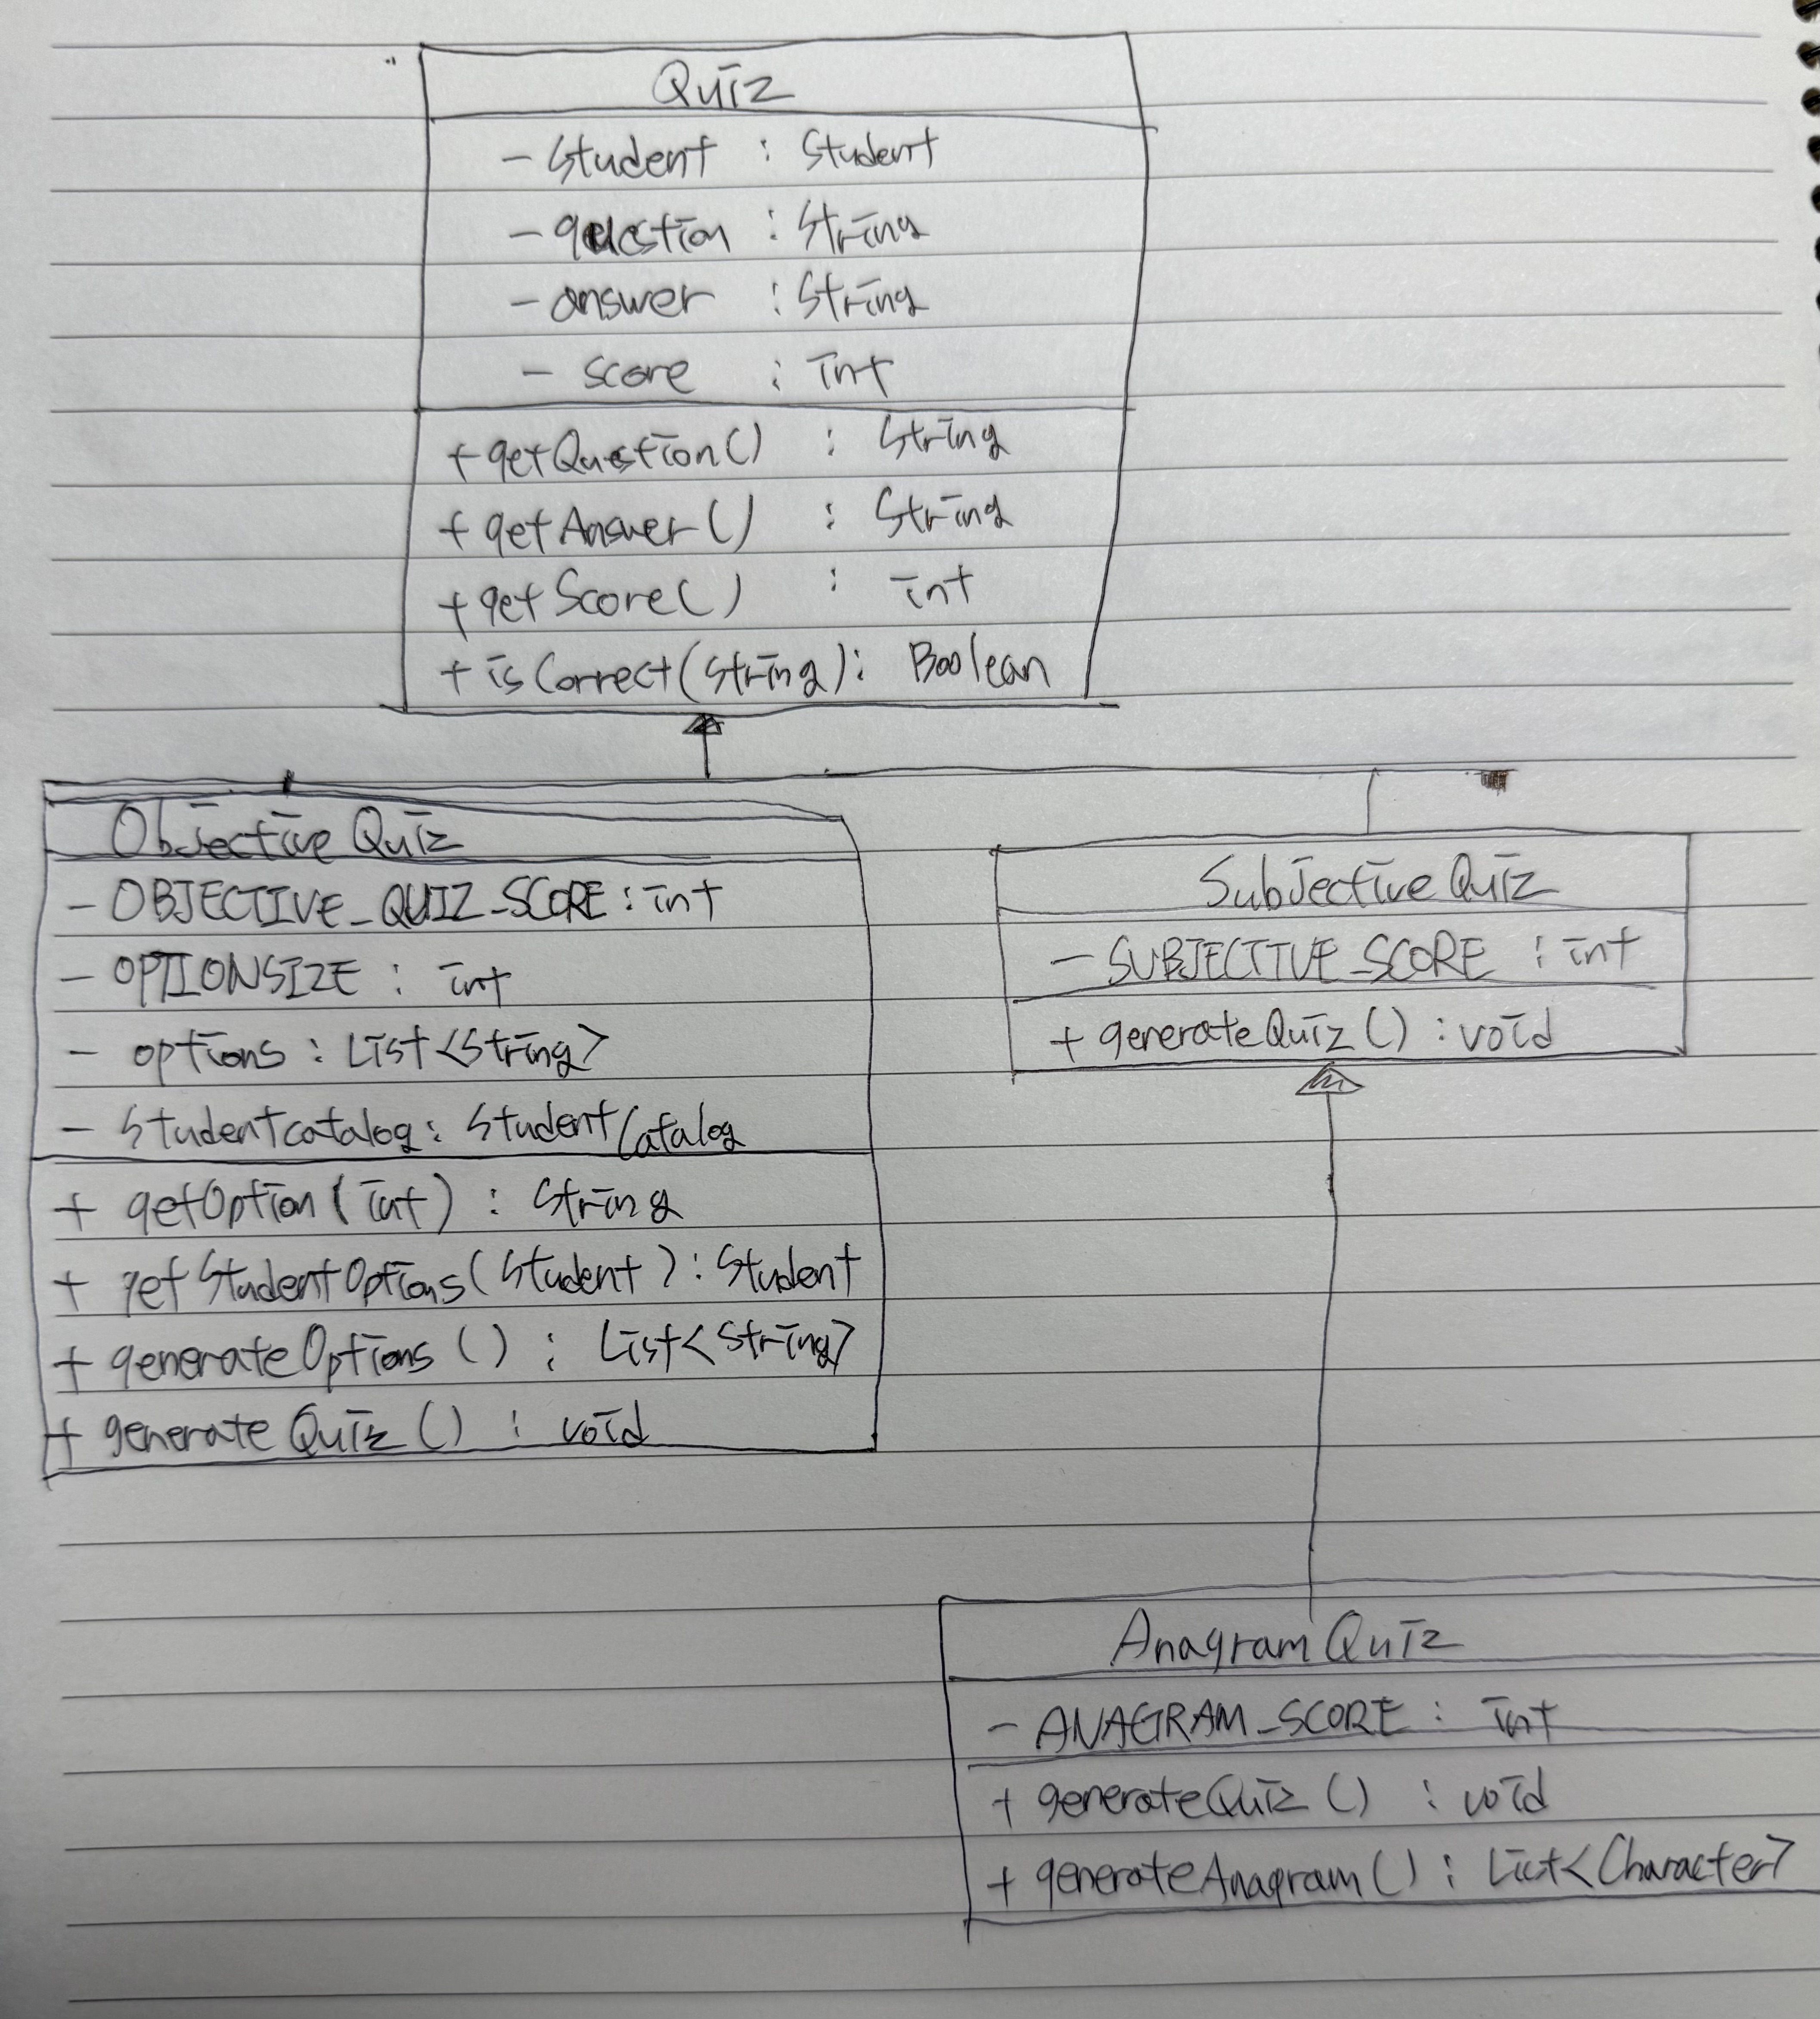 Quiz
- Student : Student
- question : String
- answer : String
- score : int
+ getQuestion() : String
+ getAnswer() : String
+ getScore() : int
+ isCorrect(String) : Boolean
ObjectiveQuiz
- OBJECTIVE_QUIZ_SCORE : int
- OPTIONSIZE : int
- options : List<String>
- Studentcatalog : StudentCatalog
+ getOption(int) : String
+ getStudentOptions(Student) : Student
+ generateOptions() : List<String>
+ generateQuiz() : void
SubjectiveQuiz
- SUBJECTIVE_SCORE : int
+ generateQuiz() : void
AnagramQuiz
- ANAGRAM_SCORE : int
+ generateQuiz() : void
+ generateAnagram() : List<Character>